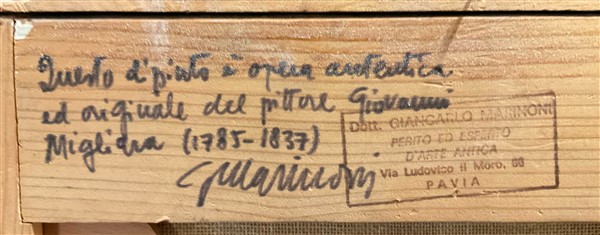 Questo dipinto è opera autentica
ed originale del pittore Giovanni
Migliara (1785-1837)
GMarinoni
Dott. GIANCARLO MARINONI
PERITO ED ESPERTO
D'ARTE ANTICA
Via Ludovico il Moro, 68
PAVIA